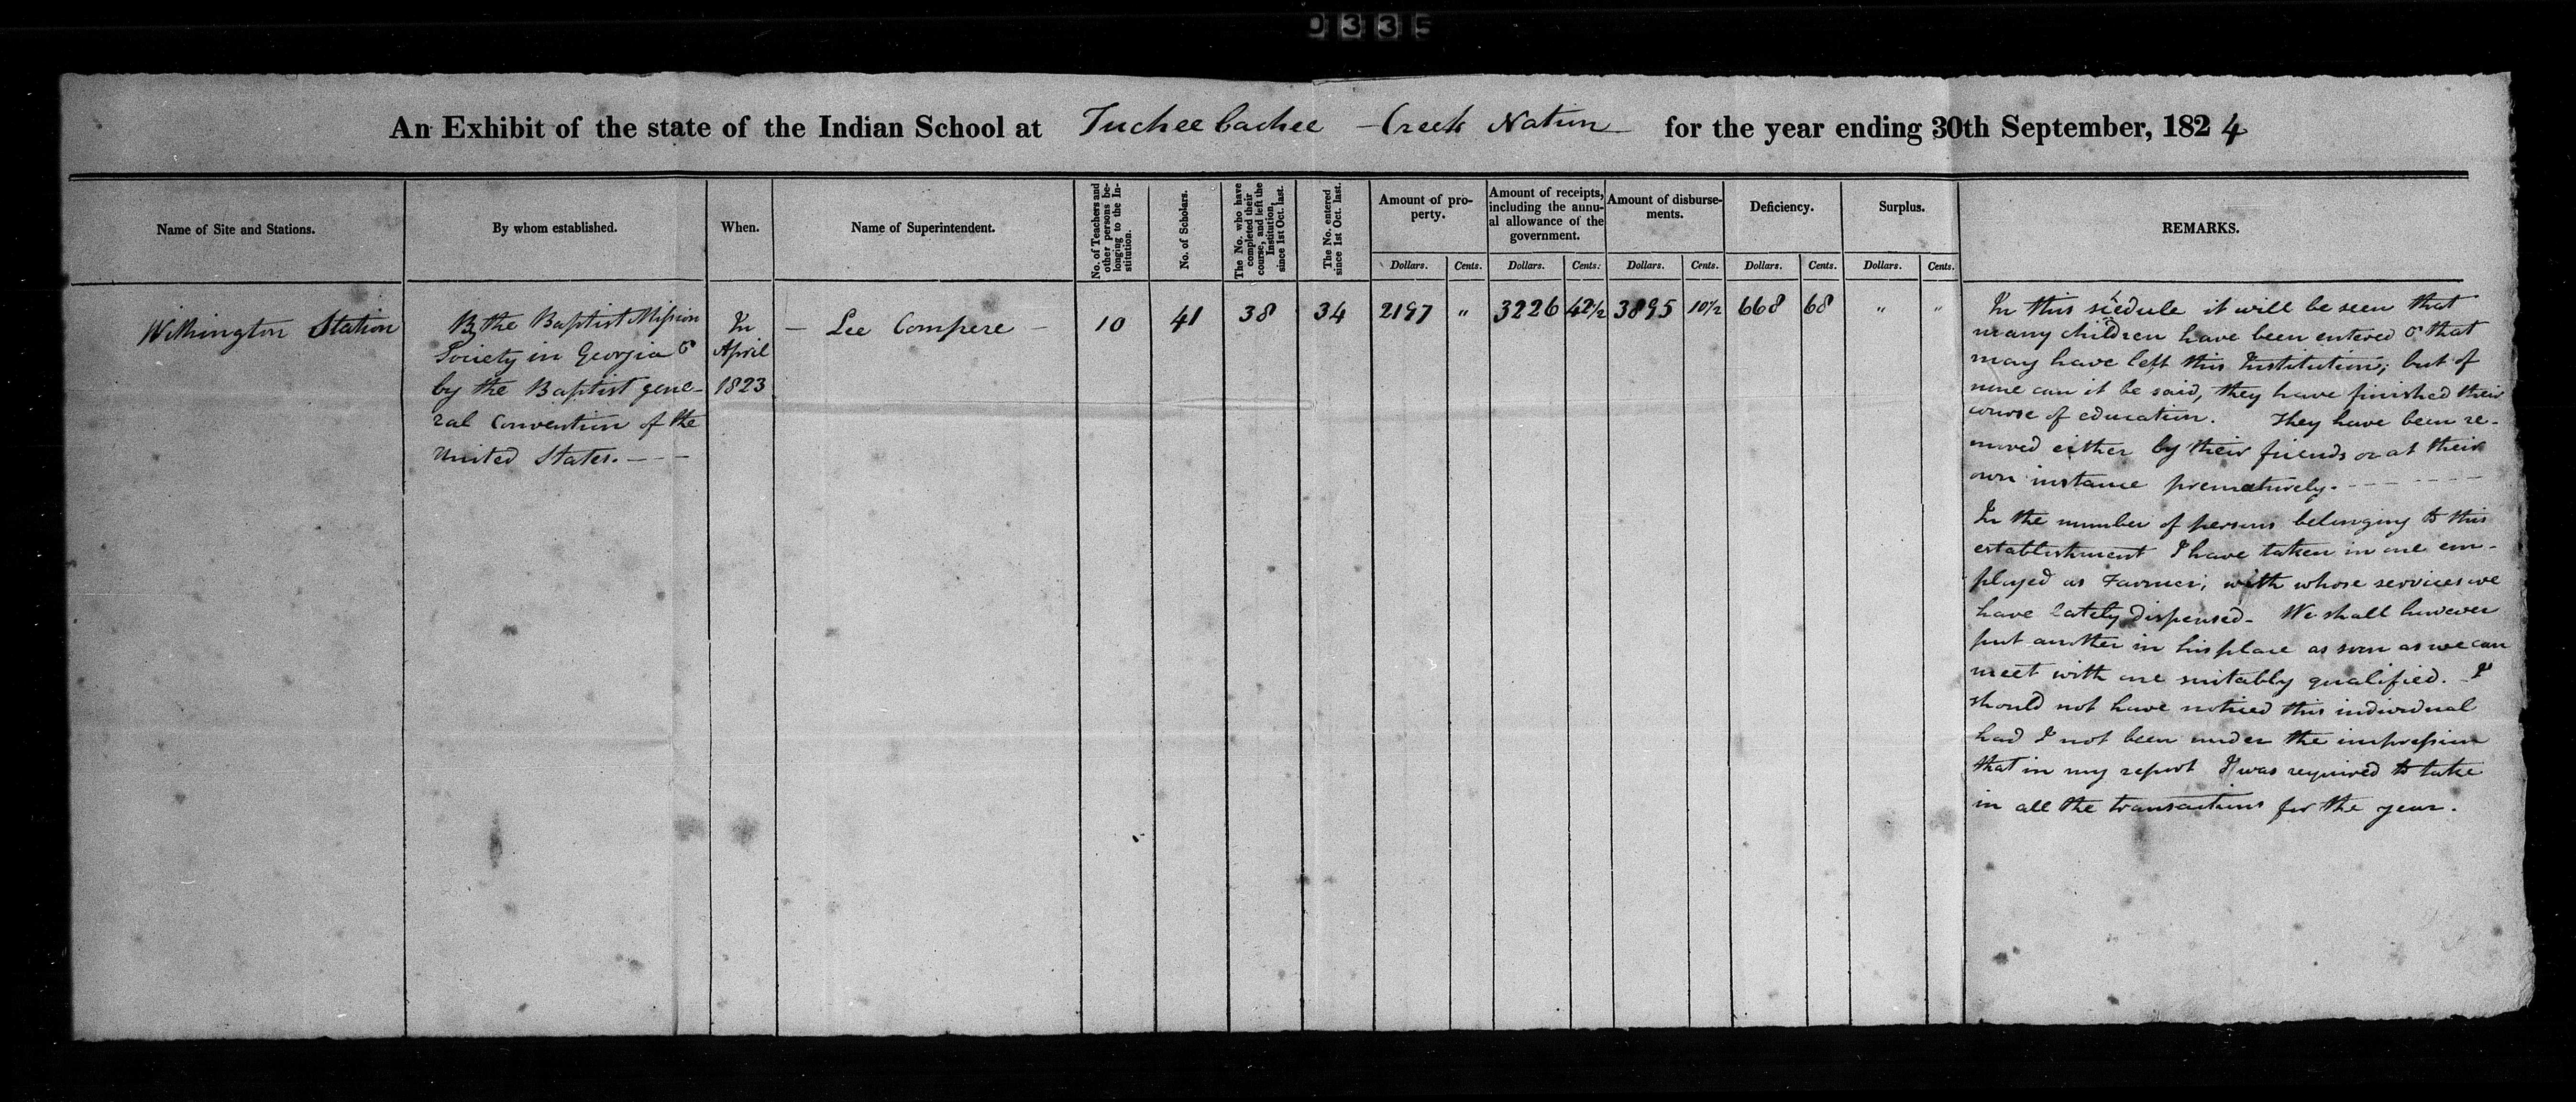 0335
An Exhibit of the state of the Indian School at Tucheebachee - Creek Nation - for the year ending 30th September, 1824
Name of Site and Stations.
By whom established.
When.
Name of Superintendent.
No. of Teachers and
other persons be-
longing to the In-
stitution.
No. of Scholars.
The No. who have
completed their
course, and left the
Institution,
since 1st Oct. last.
The No. entered
since 1st Oct. last.
Amount of pro-
perty.
Dollars. Cents.
Amount of receipts,
including the annu-
al allowance of the
government.
Dollars. Cents.
Amount of disburse-
ments.
Dollars. Cents.
Deficiency.
Dollars. Cents.
Surplus.
Dollars. Cents.
REMARKS.
Withington Station
By the Baptist Mission
Society in Georgia &
by the Baptist gene-
ral Convention of the
United States. - - -
In
April
1823
- Lee Compere -
10
41
38
34
2197 "
3226 42½
3895 10½
668 68
" "
In this scedule it will be seen that
many children have been entered & that
many have left this Institution; but of
none can it be said, they have finished their
course of education. They have been re-
moved either by their friends or at their
own instance prematurely. - - - - -
In the number of persons belonging to this
establishment I have taken in one em-
ployed as Farmer; with whose services we
have lately dispensed - We shall however
put another in his place as soon as we can
meet with one suitably qualified. - I
should not have noticed this individual
had I not been under the impression
that in my report I was required to take
in all the transactions for the year.